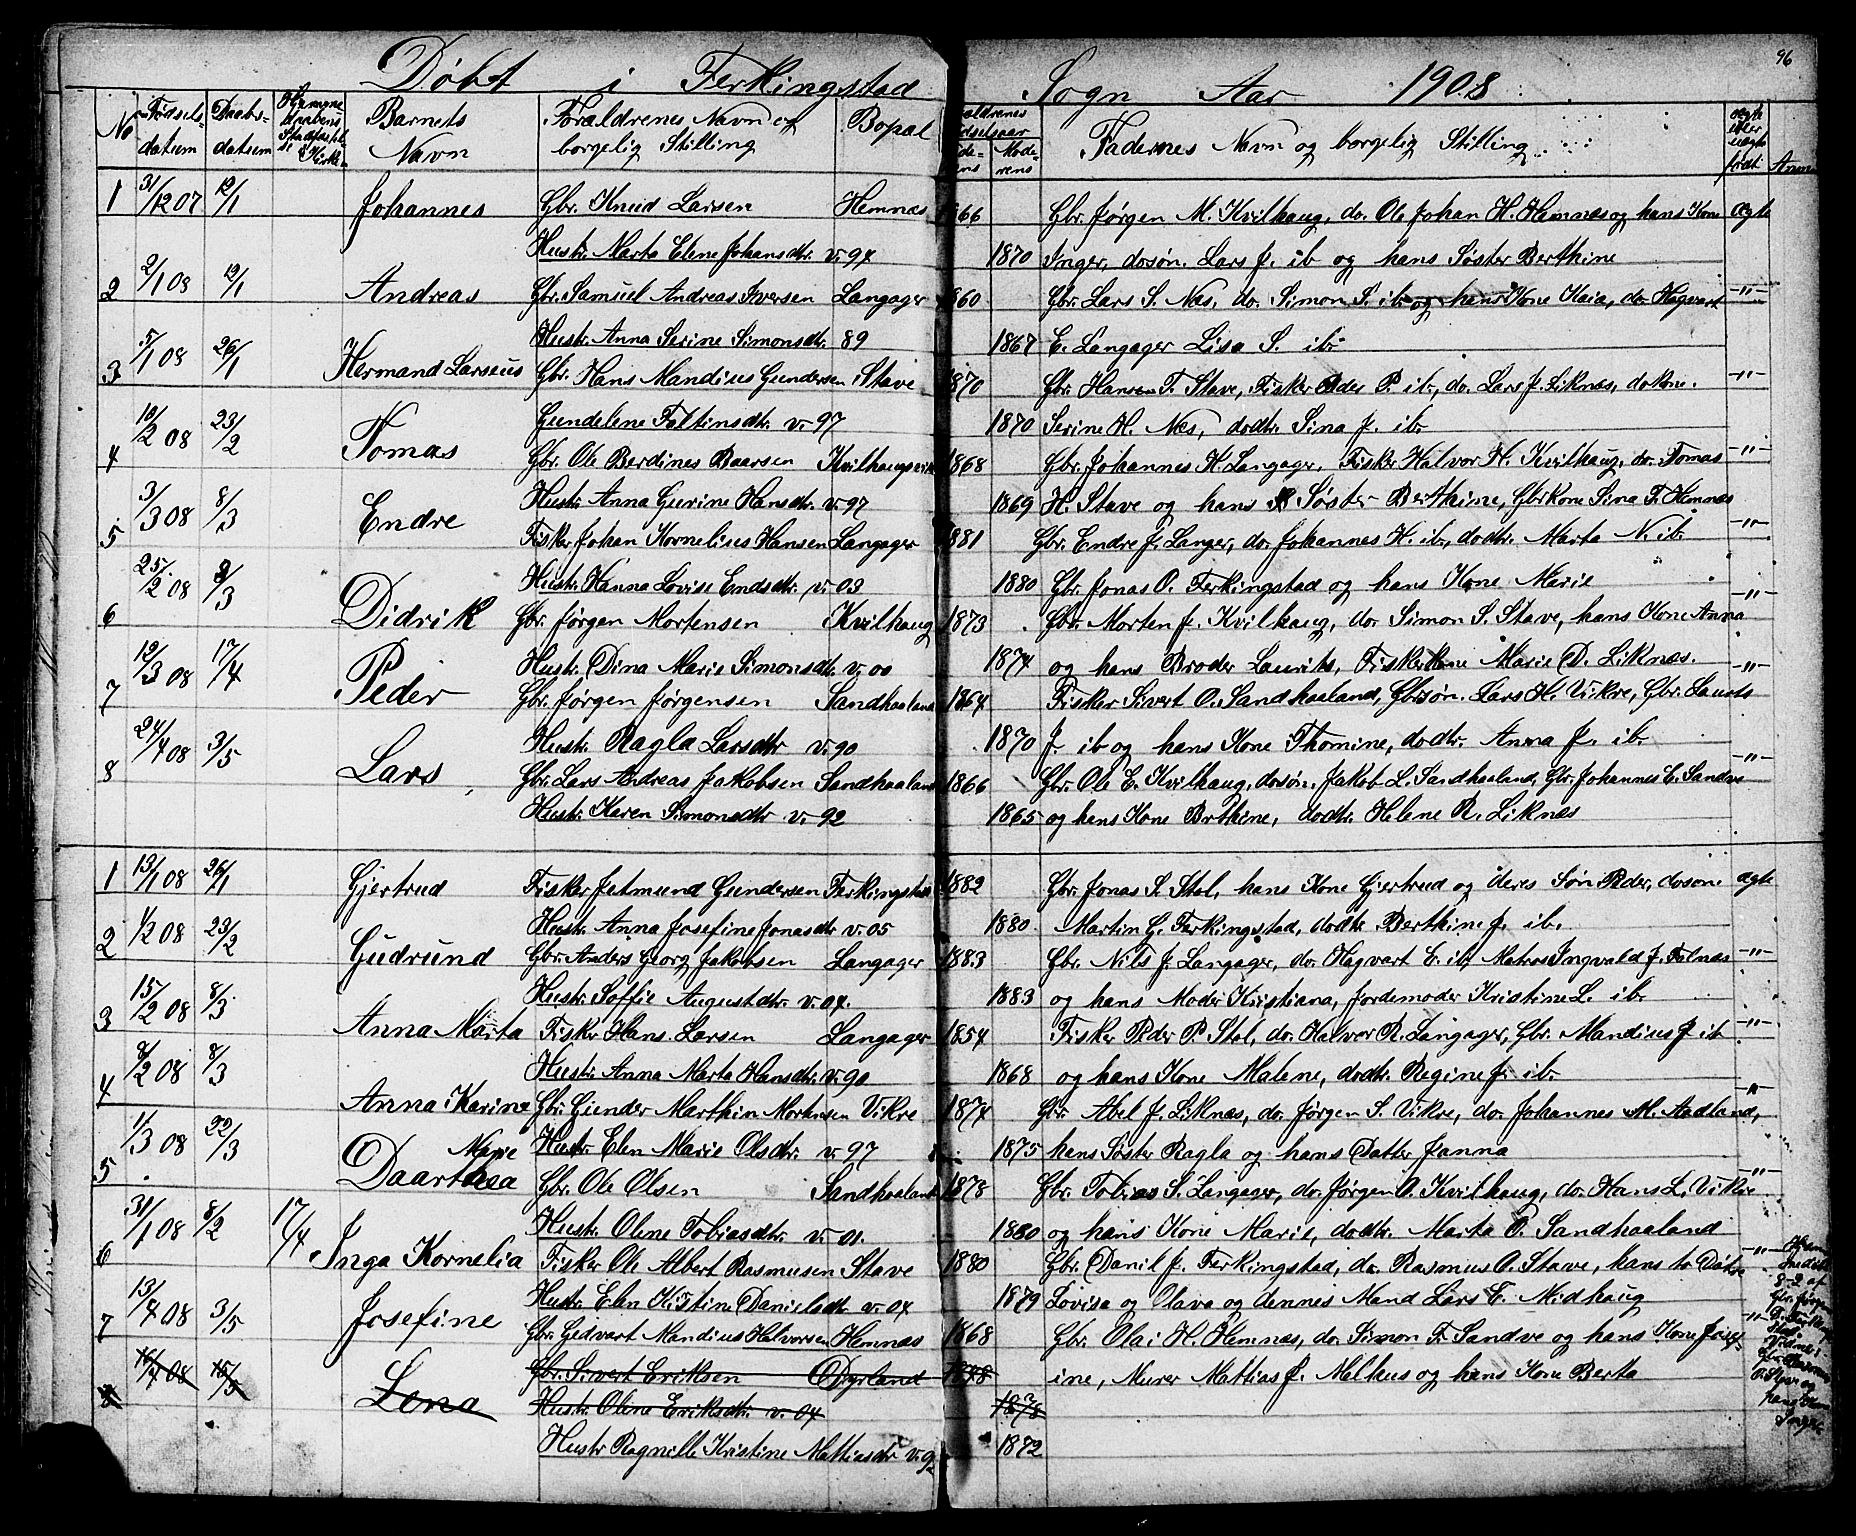 96
Døbt i Ferkingstad Sogn Aar 1908
No Fødsels-datum Daabs-datum Barnets Navn Forældrenes Navn og borgelig Stilling Bopæl Faderens Moderens Fadernes Navn og borgelig Stilling ægte eller uægte født Anm
1 31/12 07 12/1 Johannes Gbr. Knud Larsen Hemnæs 1866 Gbr. Jørgen M. Kvilhaug, do. Ole Johan H. Hemnæs og hans Kone ægte
Hustr. Marta Elene Johansdtr. v. 94 1870 Inger, dosøn. Lars J. ib og hans Søster Berthine
2 2/1 08 12/1 Andreas Gbr. Samuel Andreas Iversen Langager 1860 Gbr. Lars S. Næs, do. Simon S. ib. og hans Kone Kaia, do. Hagvart -"-
Hustr. Anna Serine Simonsdtr. 89 1867 E. Langager Lisa S. ib.
3 5/1 08 26/1 Hermand Larseus Gbr. Hans Mandius Gundersen Stave 1870 Gbr. Hansen F. Stave, Fisker Peder P. ib., do. Lars J. Liknæs, do kone. -"-
Gundelene Faltinsdtr. v. 97 1870 Serine H. Næs, dodtr. Sina J. ib.
4 10/2 08 23/2 Tomas Gbr. Ole Berdines Baarsen Kvilhaugsvik 1868 Gbr. Johannes K. Langager, Fisker Halvor H. Kvilhaug, do. Tomas -"-
Hustr. Anna Gurine Hansdtr. v. 97 1869 H. Stave og hans Søster Berthine, Gbrkone Sina F. Hemnæs
5 3/3 08 8/3 Endre Fisker Johan Kornelius Hansen Langager 1881 Gbr. Endre J. Langer, do. Johannes H. ib., dodtr. Marta N. ib. -"-
Hustr. Hanna Lovise Endsdtr. v. 03 1880 Gbr. Jonas O. Ferkingstad og hans Kone Marie
6 25/2 08 8/3 Didrik Gbr. Jørgen Mortensen Kvilhaug 1873 Gbr. Morten J. Kvilhaug, do. Simon S. Stave, hans Kone Anna -"-
Hustr. Dina Marie Simonsdtr. v. 00 1874 og hans Broder Laurits, Fiskerkone Marie D. Liknæs.
7 12/3 08 17/4 Peder Gbr. Jørgen Jørgensen Sandhaaland 1864 Fisker Sivert O. Sandhaaland, Gbrsøn. Lars H. Vikre, Gbr. Laurts -"-
Hustr. Ragla Larsdtr v. 90 1870 J. ib og hans Kone Thomine, dodtr. Anna J. ib.
8 24/4 08 3/5 Lars Gbr. Lars Andreas Jakobsen Sandhaaland 1866 Gbr. Ole E. Kvilhaug, dosøn. Jakob L. Sandhaaland, Gbr. Johannes E. Sandve -"-
Hustr. Karen Simonsdtr v. 92 1865 og hans Kone Brthine, dodtr. Helene R. Liknæs
1 13/1 08 26/1 Gjertrud Fisker Jetmund Gundersen Ferkingstad 1882 Gbr. Jonas S. Stol, hans Kone Gjertrud og deres Søn Peder, dosøn ægte
Hustr. Anna Josefine Jonasdtr v. 05 1880 Martin G. Ferkingstad, dodtr. Berthine J. ib.
2 1/2 08 23/2 Gudrund Gbr. Anders Georg Jakobsen Langager 1883 Gbr. Nils J. Langager, do. Hagvart E. ib, Matros Ingvald J. Falnæs -"-
Hustr. Soffie Augustdtr. v. 04. 1883 og hans Moder Kristiana, jordemoder Kristine L. ib.
3 15/2 08 8/3 Anna Marta Fisker Hans Larsen Langager 1854 Fisker Peder P. Stol, do. Halvor R. Langager, Gbr. Mandius J. ib -"-
Hustr. Anna Marta Hansdtr v. 90 1868 og hans Kone Malene, dodtr. Regine J. ib.
4 8/2 08 8/3 Anna Karine Gbr. Gunder Marthin Mortensen Vikre 1874 Gbr. Abel J. Liknæs, do. Jørgen S. Vikre, do. Johannes M. Aadland, -"-
Marie Hustr. Elen Marie Olsdtr. v. 97 1875 hans Søster Ragla og hans Datter Janna
5 1/3 08 22/3 Daarthea Gbr. Ole Olsen Sandhaaland 1878 Gbr. Tobias S. Langager, do. Jørgen O. Kvilhaug, do. Hans L. Vikre -"-
Hustr. Oline Tobiasdtr. v. 01. 1880 og hans Kone Marie, dodtr. Marta O. Sandhaaland
6 31/1 08 8/2 17/4 Inga Kornelia Fisker Ole Albert Rasmusen Stave 1880 Gbr. Danil J. Ferkingstad, do. Rasmus O. Stave, hans to Døtre -"-
Hustr. Elen Kristine Danielsdtr v. 04 1879 Lovisa og Olava og dennes Mand Lars E. Midhaug
7 13/4 08 3/5 Josefine Gbr. Gedvart Mandius Halvorsen Hemnæs 1868 Gbr. Olai H. Hemnæs, do. Simon F. Sandve og hans Kone Josef- -"-
8 15/5 Lena Gbr. Sivert Eriksen Dyrland 1878 ine, Murer Mattias J. Melhus og hans Kone Berta
Hustr. Oline Eriksdtr. v. 04 1878
Hustr Ragnille Kristine Mattiasdtr v. 92 1872